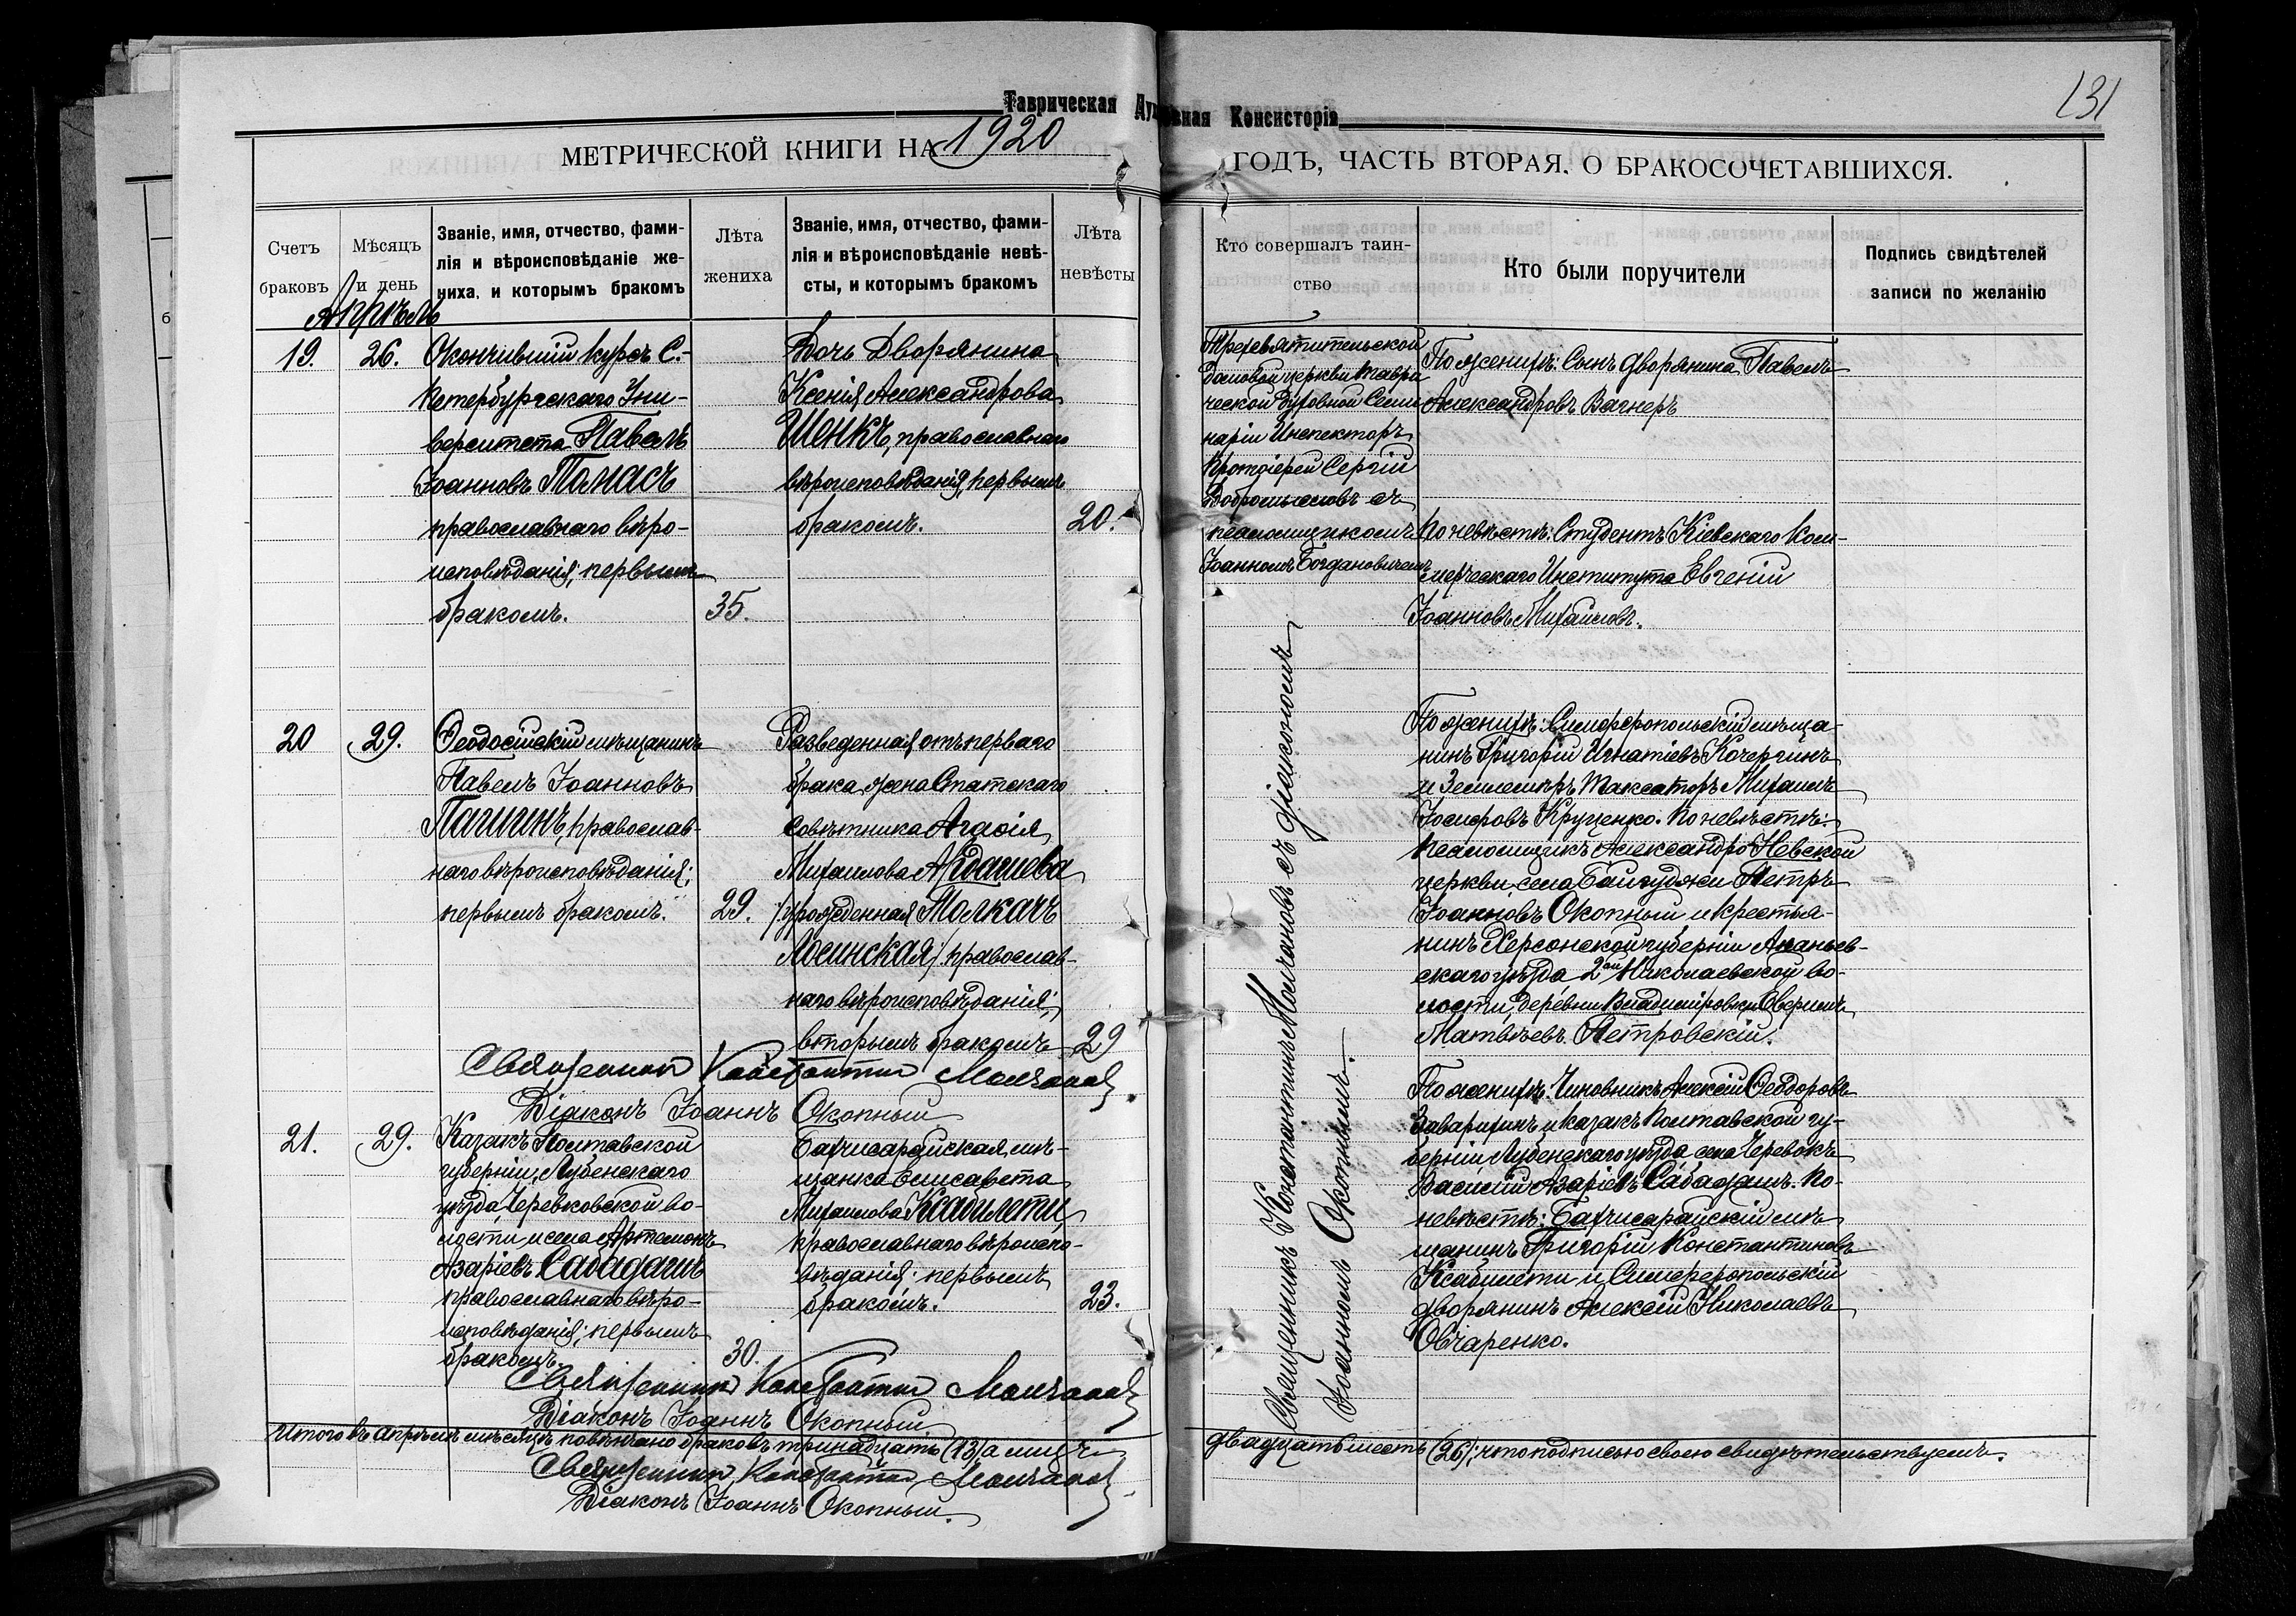 Таврическая Духовная Консисторія
131
МЕТРИЧЕСКОЙ КНИГИ НА 1920 ГОДЪ, ЧАСТЬ ВТОРАЯ, О БРАКОСОЧЕТАВШИХСЯ.
Счетъ
браковъ
Мѣсяцъ
и день
Званіе, имя, отчество, фами-
лія и вѣроисповѣданіе же-
ниха, и которымъ бракомъ
Лѣта
жениха
Званіе, имя, отчество, фами-
лія и вѣроисповѣданіе невѣ-
сты, и которымъ бракомъ
Лѣта
невѣсты
Кто совершалъ таин-
ство
Кто были поручители
Подпись свидѣтелей
записи по желанію
Апрѣль
19.
26.
Окончившій курсъ С.-
Петербургскаго Уни-
верситета Павелъ
Іоанновъ Томасъ
православнаго вѣро-
исповѣданія; первымъ
бракомъ.
35.
Дочь Дворянина
Ксенія Александрова
Шенкъ, православнаго
вѣроисповѣданія, первымъ
бракомъ.
20.
Трехсвятительской
домовой церкви Таври
ческой Духовной Семи
наріи Инспекторъ
Протоіерей Сергій
Добромысловъ съ
псаломщикомъ
Іоанномъ Богдановичемъ
По женихѣ: Сынъ дворянина Павелъ
Александровъ Вагнеръ
По невѣстѣ: Студентъ Кіевскаго Ком-
мерческаго Института Евгеній
Іоанновъ Михайловъ.
20
29.
Ѳеодосійскій мѣщанинъ
Павелъ Іоанновъ
Пагигинъ, православ-
наго вѣроисповѣданія;
первымъ бракомъ.
29.
Разведенная отъ перваго
брака жена Статскаго
Совѣтника Агаѳія
Михаилова Ардашева
/урожденная Толкачъ
Лосинская/ православ-
наго вѣроисповѣданія;
вторымъ бракомъ
29
Священникъ Константинъ Молчановъ съ діакономъ
Іоанномъ Окопнымъ.
По женихѣ: Симферопольскій мѣща-
нинъ Григорій Игнатіевъ Кочергинъ
и Землемѣръ Таксаторъ Михаилъ
Іосифовъ Круценко. По невѣстѣ:
Псаломщикъ Александро Невской
церкви села Байгуджи Петръ
Іоанновъ Окопный и крестья-
нинъ Херсонской губерніи Ананьев-
скаго уѣзда 2ой Николаевской во-
лости, деревни Владиміровки Оверимъ
Матвѣевъ Петровскій.
Священникъ Константинъ Молчановъ
Діаконъ Іоаннъ Окопный
21.
29.
Казакъ Полтавской
губерніи, Лубенскаго
уѣзда, Черевковской во-
лости, и села Артемонъ
Азаріевъ Сабадашъ
православнаго вѣро-
исповѣданія; первымъ
бракомъ.
30.
Бахчисарайская мѣ-
щанка Елисавета
Михаилова Ксабилети
православнаго вѣроиспо-
вѣданія; первымъ
бракомъ.
23.
По женихѣ: Чиновникъ Алексій Ѳеодоровъ
Заварихинъ и казакъ Полтавской гу-
берніи Лубенскаго уѣзда села Черевокъ
Василій Азаріевъ Сабадашъ. По
невѣстѣ: Бахчисарайскій мѣ
щанинъ Григорій Константиновъ
Ксабилети и Симферопольскій
дворянинъ Алексій Николаевъ
Овчаренко.
Священникъ Константинъ Молчановъ
Діаконъ Іоаннъ Окопный.
Итого въ Апрѣлѣ мѣсяцѣ повѣнчано браковъ тринадцать (13), а лицъ двадцать шесть (26); что подписью своею свидѣтельствуемъ.
Священникъ Константинъ Молчановъ
Діаконъ Іоаннъ Окопный.